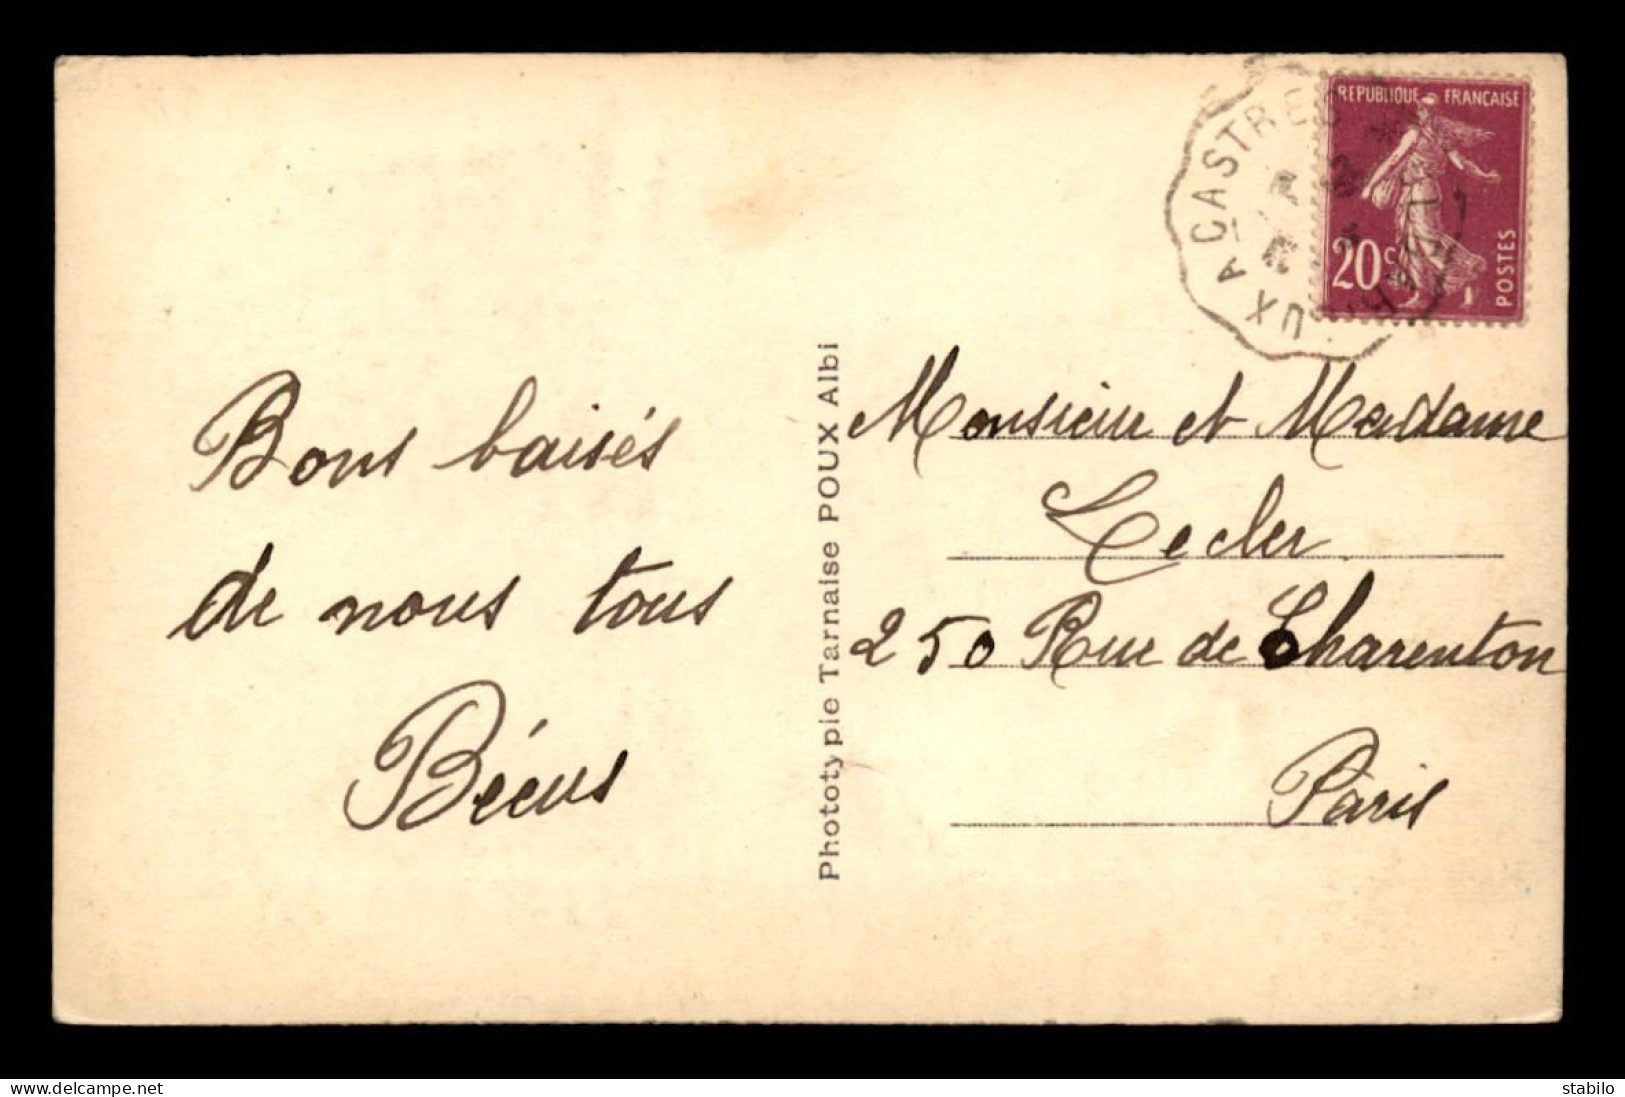 Bons baisés
de nous tous
Bécus
Phototypie Tarnaise POUX Albi
REPUBLIQUE FRANCAISE
20c
POSTES
UX A CASTRES
Monsieur et Madame
Lecler
250 Rue de Charenton
Paris
www.delcampe.net
stabilo